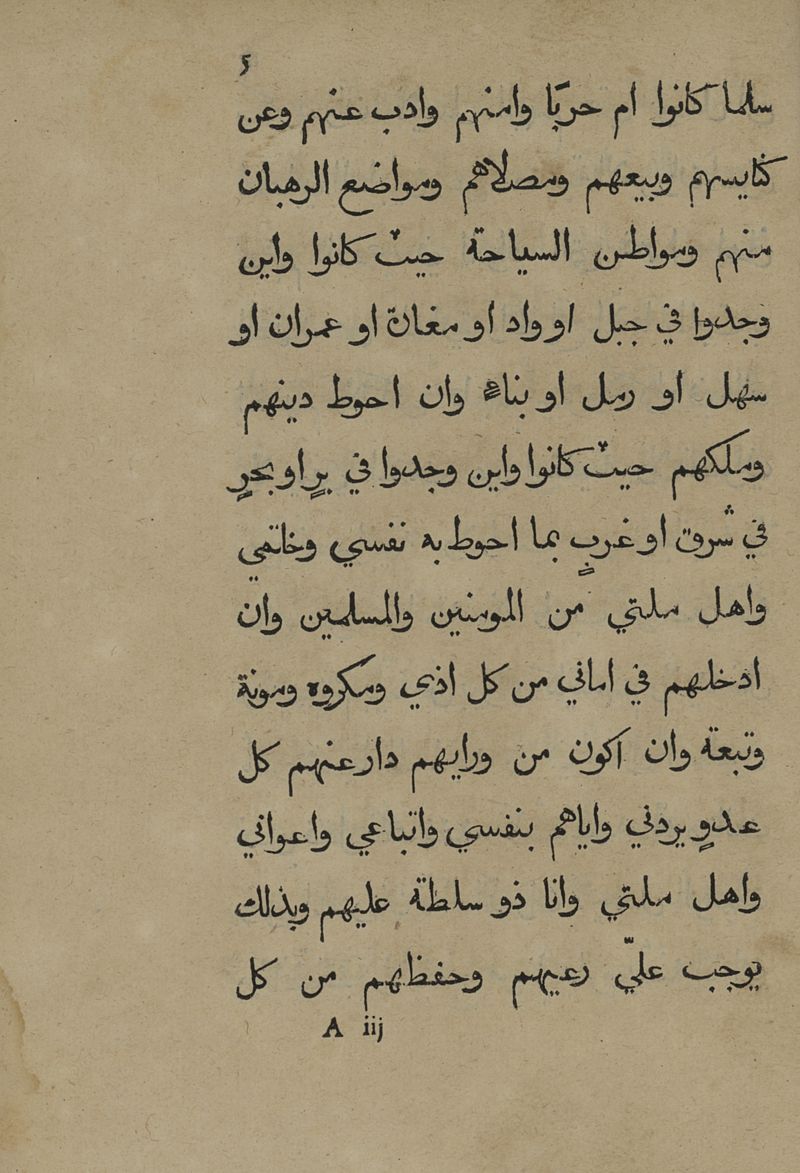 5
سلما كانوا ام حربًا وامنهم وادب عنهم وعن
كنايسهم وبيعهم ومصلاهم ومواضع الرهبان
منهم ومواطن السياحة حيث كانوا واين
وجدوا في جبل او واد او مغارة او عمران او
سهل او رمل او بناء وان احوط دينهم
وملكهم حيث كانوا واين وجدوا في برٍ او بحرٍ
في شرق او غربٍ بما احوط به نفسي وخاتمي
واهل ملتي من المومنين والمسلمين وان
ادخلهم في اماني من كل اذي ومكروه ومونة
وتبعة وان اكون من ورايهم دار عنهم كل
عدوٍ يردني واياهم بنفسي واتباعي واعواني
واهل ملتي وانا ذو سلطة عليهم وبذلك
يوجب عليّ رعيهم وحفظهم من كل
A iij